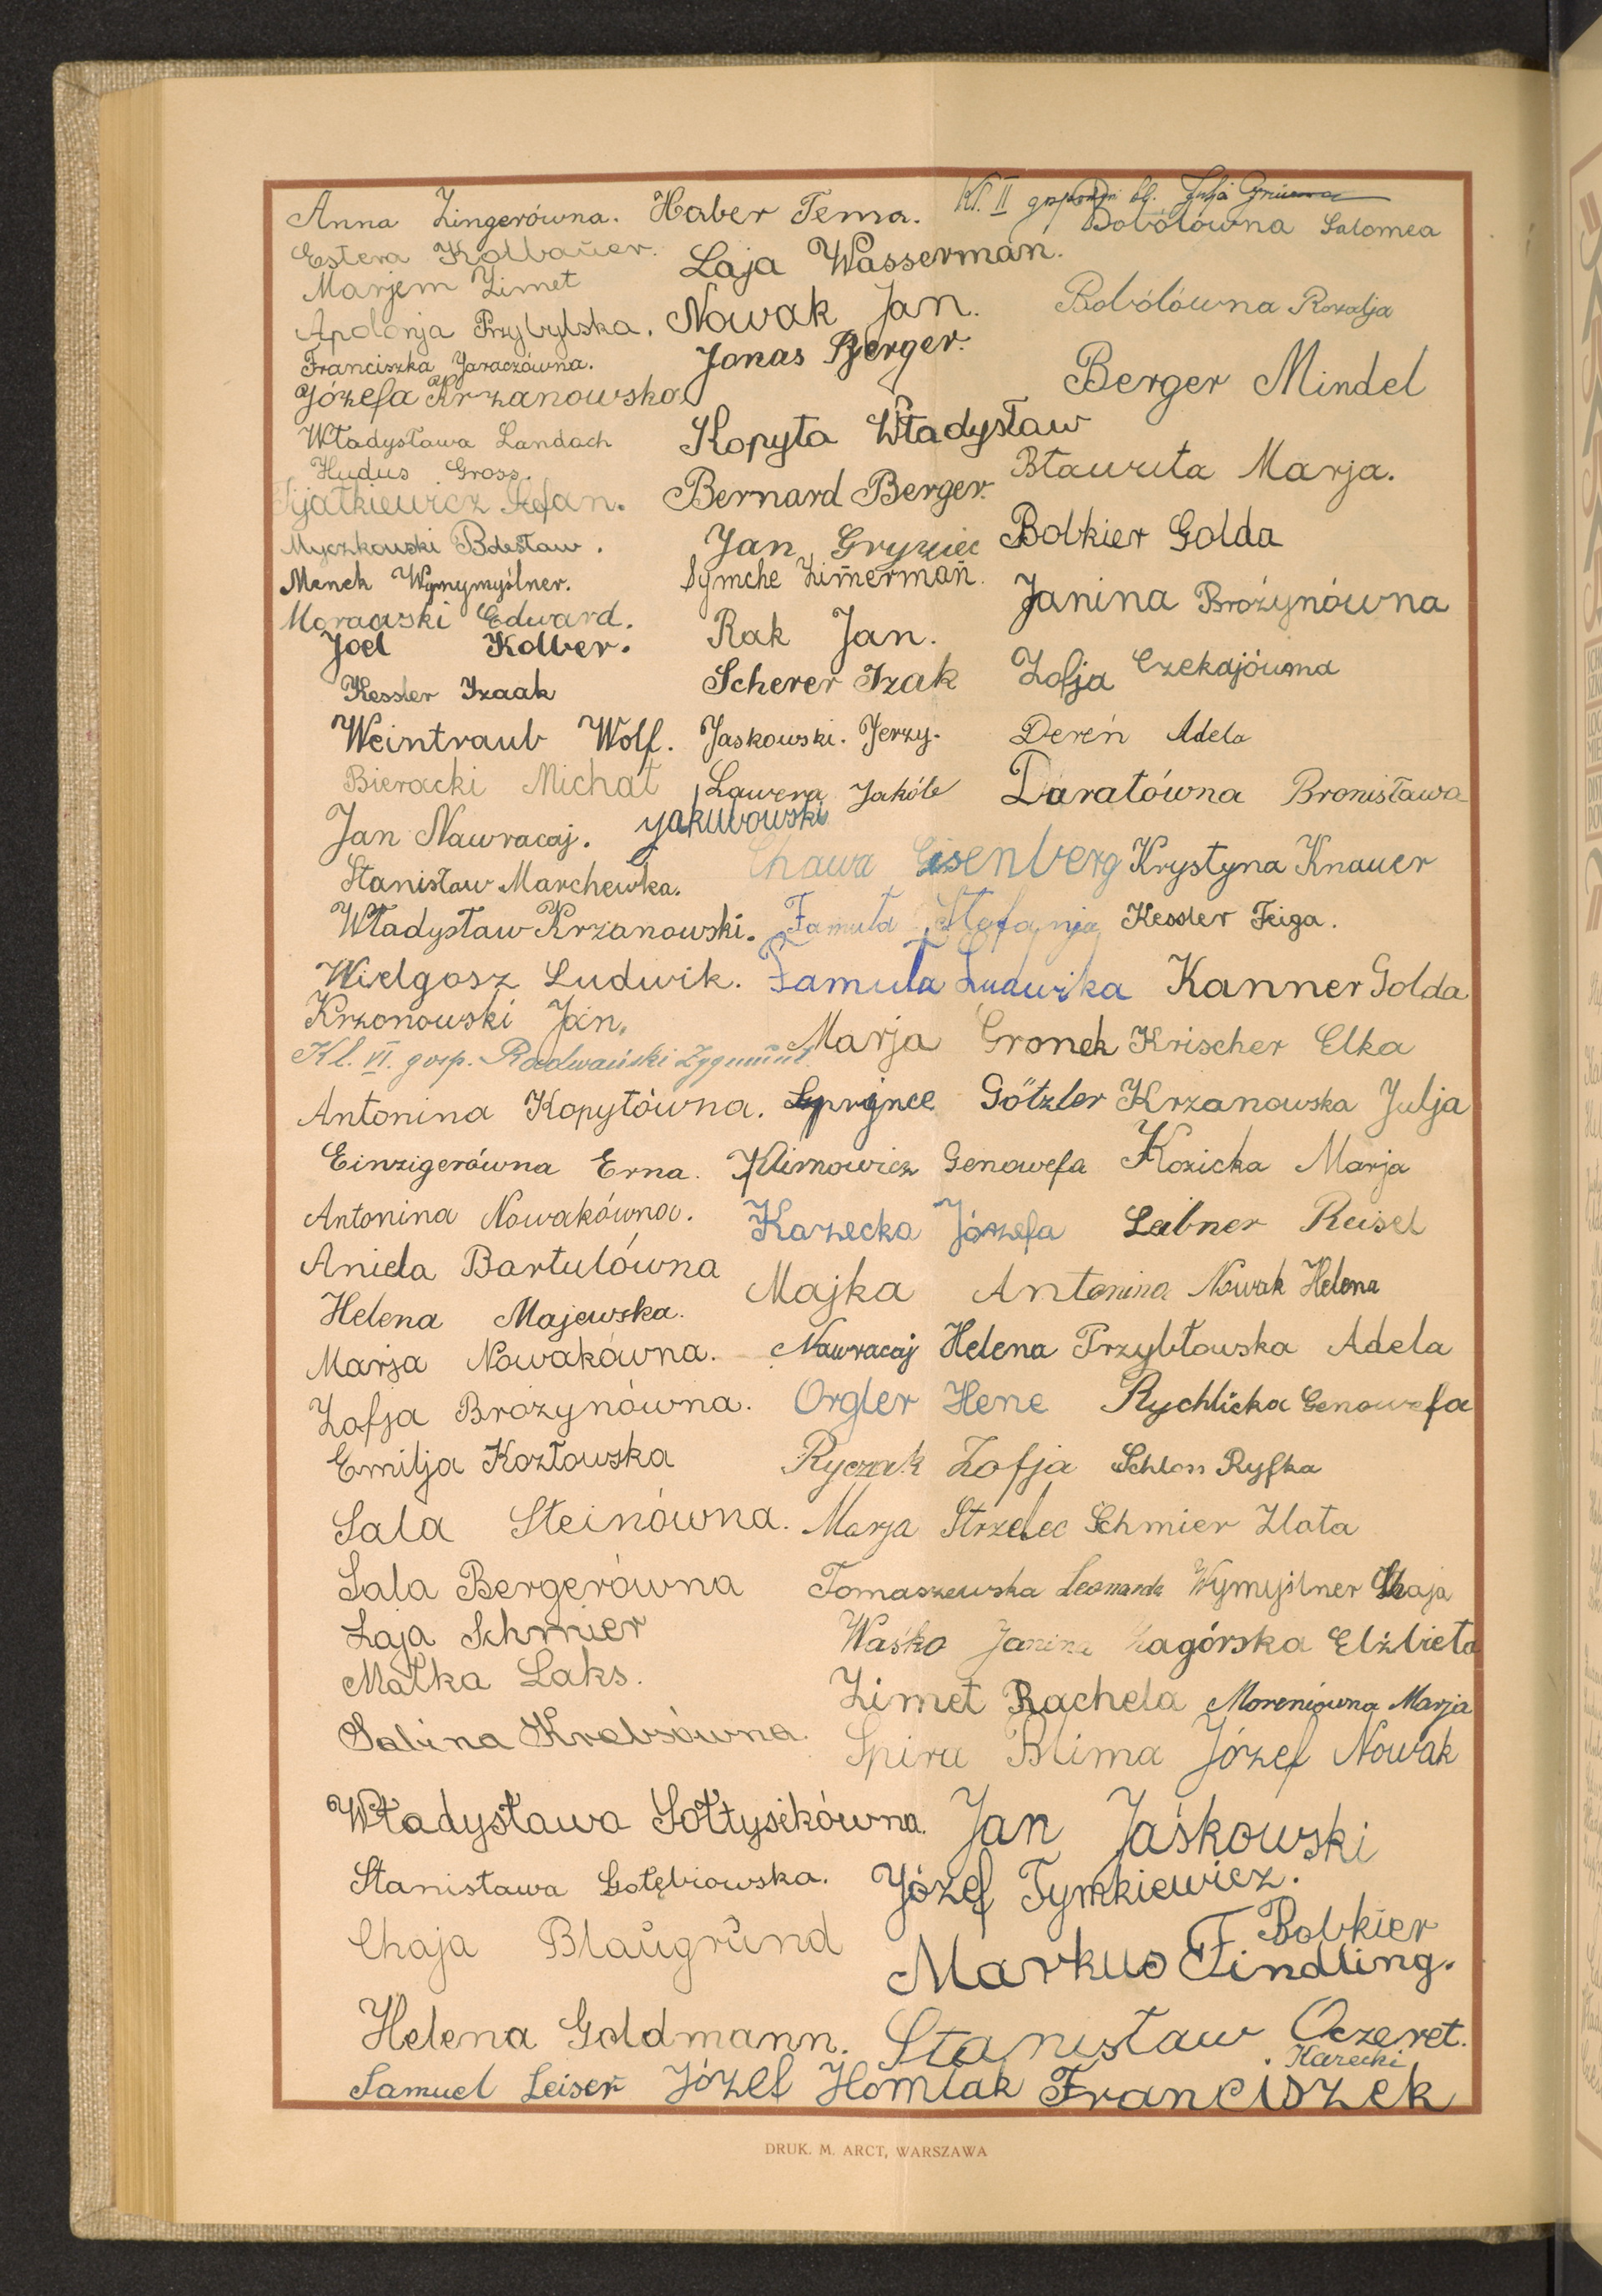 Anna Zingerówna.
Estera Kolbauer.
Marjem Zimet
Apolonja Przybylska.
Franciszka Jaraczówna.
Józefa Krzanowska
Władysława Landach
Hudus Gross.
Stefan.
Myczkowski Bolesław.
Menek Wymymyślner.
Morawski Edward.
Joel Kolber.
Kessler Izaak
Weintraub Wolf.
Bieracki Michał
Jan Nawracaj.
Stanisław Marchewka.
Władysław Krzanowski.
Wielgosz Ludwik.
Krzonowski Jan.
Kl. VI. gosp. Radwański Zygmunt.
Antonina Kopytówna.
Einzigerówna Erna.
Antonina Nowakówna.
Aniela Bartulówna
Helena Majewska.
Marja Nowakówna.
Zofja Brożynówna.
Emilja Kozłowska
Sala Steinówna.
Sala Bergerówna
Łaja Schmier
Matka Laks.
Sabina Krebsówna.
Władysława Sołtysikówna.
Stanisława Gołębiowska.
Chaja Blaugrund
Helena Goldmann.
Samuel Leiser
Haber Tema.
Laja Wasserman.
Nowak Jan.
Jonas Berger.
Kopyta Władysław
Bernard Berger.
Jan Gryziec
Symche Zimerman.
Rak Jan.
Scherer Izak
Jaskowski. Jerzy.
Ławera Jakób
Jakubowski
Chawa Eisenberg
Famuła Stefanja
Famuła Ludwika
Marja Gronek
Sprynce Götzler
Klimowicz Genowefa
Kazecka Józefa
Majka Antonina
Nawracaj Helena
Orgler Hene
Ryczak Zofja
Marja Strzelec
Tomaszewska Leonarda
Waśko Janina
Zimet Rachela
Spira Blima
Kl. II
Bobólówna Salomea
Bobólówna Rozalja
Berger Mindel
Bławuta Marja.
Bobkier Golda
Janina Brożynówna
Zofja Czekajówna
Dereń Adela
Darałówna Bronisława
Krystyna Knauer
Kessler Feiga.
Kanner Golda
Krischer Elka
Krzanowska Julja
Kozicka Marja
Leibner Reisel
Nowak Helena
Przybłowska Adela
Rychlicka Genowefa
Schloss Ryfka
Schmier Zlata
Wymyślner Chaja
Zagórska Elżbieta
Moreniówna Marja
Józef Nowak
Jan Jaśkowski
Józef Tymkiewicz.
F Bobkier
Markus Findling.
Stanisław Oczeret.
Józef Homlak
Kazecki
Franciszek
DRUK. M. ARCT, WARSZAWA